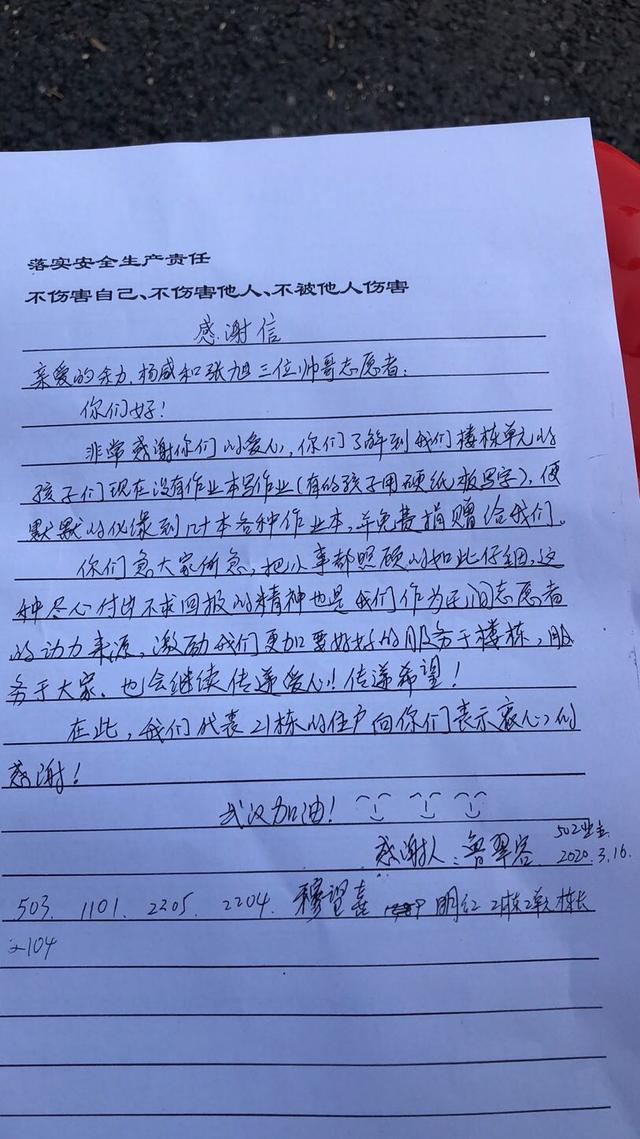 落实安全生产责任
不伤害自己、不伤害他人、不被他人伤害
感谢信
亲爱的余力、杨威和张旭三位帅哥志愿者：
你们好！
非常感谢你们的爱心，你们了解到我们楼栋单元的
孩子们现在没有作业本写作业（有的孩子用硬纸板写字），便
默默的化缘到几十本各种作业本，并免费捐赠给我们。
你们急大家所急，把小事都照顾的如此仔细，这
种尽心付出不求回报的精神也是我们作为民间志愿者
的动力来源，激励我们更加要好好的服务于楼栋，服
务于大家、也会继续传递爱心！传递希望！
在此，我们代表21栋的住户向你们表示衷心的
感谢！
武汉加油！
502业主
感谢人：鲁翠容 2020.3.16.
503. 1101. 2205. 2204. 穆望喜 明红 21栋2单元栋长
2-104